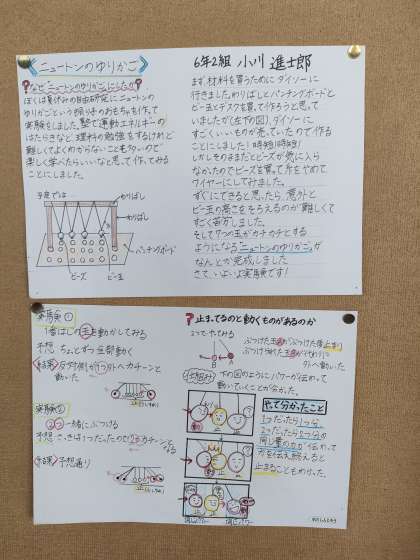 ニュートンのゆりかご
なぜ"ニュートンのゆりかご"にしたの?
ぼくは夏休みの自由研究にニュートンの
ゆりかごという振り子のおもちゃを作って
実験をしました。塾で運動エネルギーの
はたらきなど理科の勉強をするけれど
難しくてよくわからないことも多いので
楽しく学べたらいいなと思って作ってみる
ことにしました。
予定では
わりばし
わりばし
パンチングボード
ビーズ
ビー玉
6年2組 小川 進士郎
まず、材料を買うためにダイソーに
行きました。わりばしとパンチングボードと
ビー玉とデスクを買って作ろうと思って
いましたが(左下の図)、ダイソーに
すごくいいものが売っていたので作る
ことにしました!
しかしそのままだとビーズが気に入ら
なかったのでビーズを買って糸をやめて
ワイヤーにしてみました。
すぐにできると思ったら、意外と
ビー玉の高さをそろえるのが難しくて
すごく苦労しました。
そして7つの玉がカチカチとする
ようになる"ニュートンのゆりかご"が
なんとか完成しました
さて、いよいよ実験です!
実験①
1番はしの玉を動かしてみる
予想 ちょっとずつ全部動く
結果 反対側が1つ外へカチーンと
動いた
実験②
2つ一緒にぶつける
予想 さっきは1つだったので2つカチーンと
なる
結果 予想通り
? 止まってるのと動くものがあるのか
2つでやってみる
ぶつけた玉Aがぶつけた後止まり
ぶつけられた玉Bが代わりに
外へ動いた
A
B
仕組み
下の図のようにパワーが伝わって
動いていくことが分かった。
やって分かったこと
1つだったら1つ分
2つだったら2つ分の
同じ量の力が伝わって
力を伝え終えると
止まることもわかった。